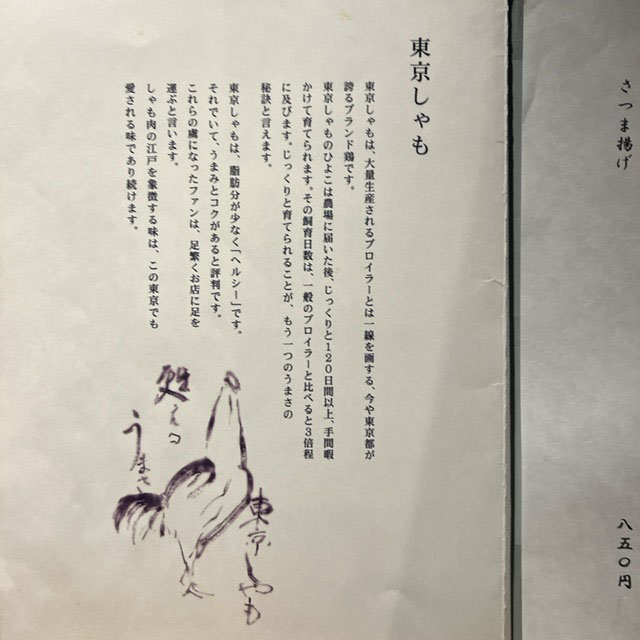 さつま揚げ
八五〇円
東京しゃも
東京しゃもは、大量生産されるブロイラーとは一線を画する、今や東京都が
誇るブランド鶏です。
東京しゃものひよこは農場に届いた後、じっくりと120日間以上、手間暇
かけて育てられます。その飼育日数は、一般のブロイラーと比べると3倍程
に及びます。じっくりと育てられることが、もう一つのうまさの
秘訣と言えます。
東京しゃもは、脂肪分が少なく「ヘルシー」です。
それでいて、うまみとコクがあると評判です。
これらの虜になったファンは、足繁くお店に足を
運ぶと言います。
しゃも肉の江戸を象徴する味は、この東京でも
愛される味であり続けます。
東京しゃも
甦える
うまさ